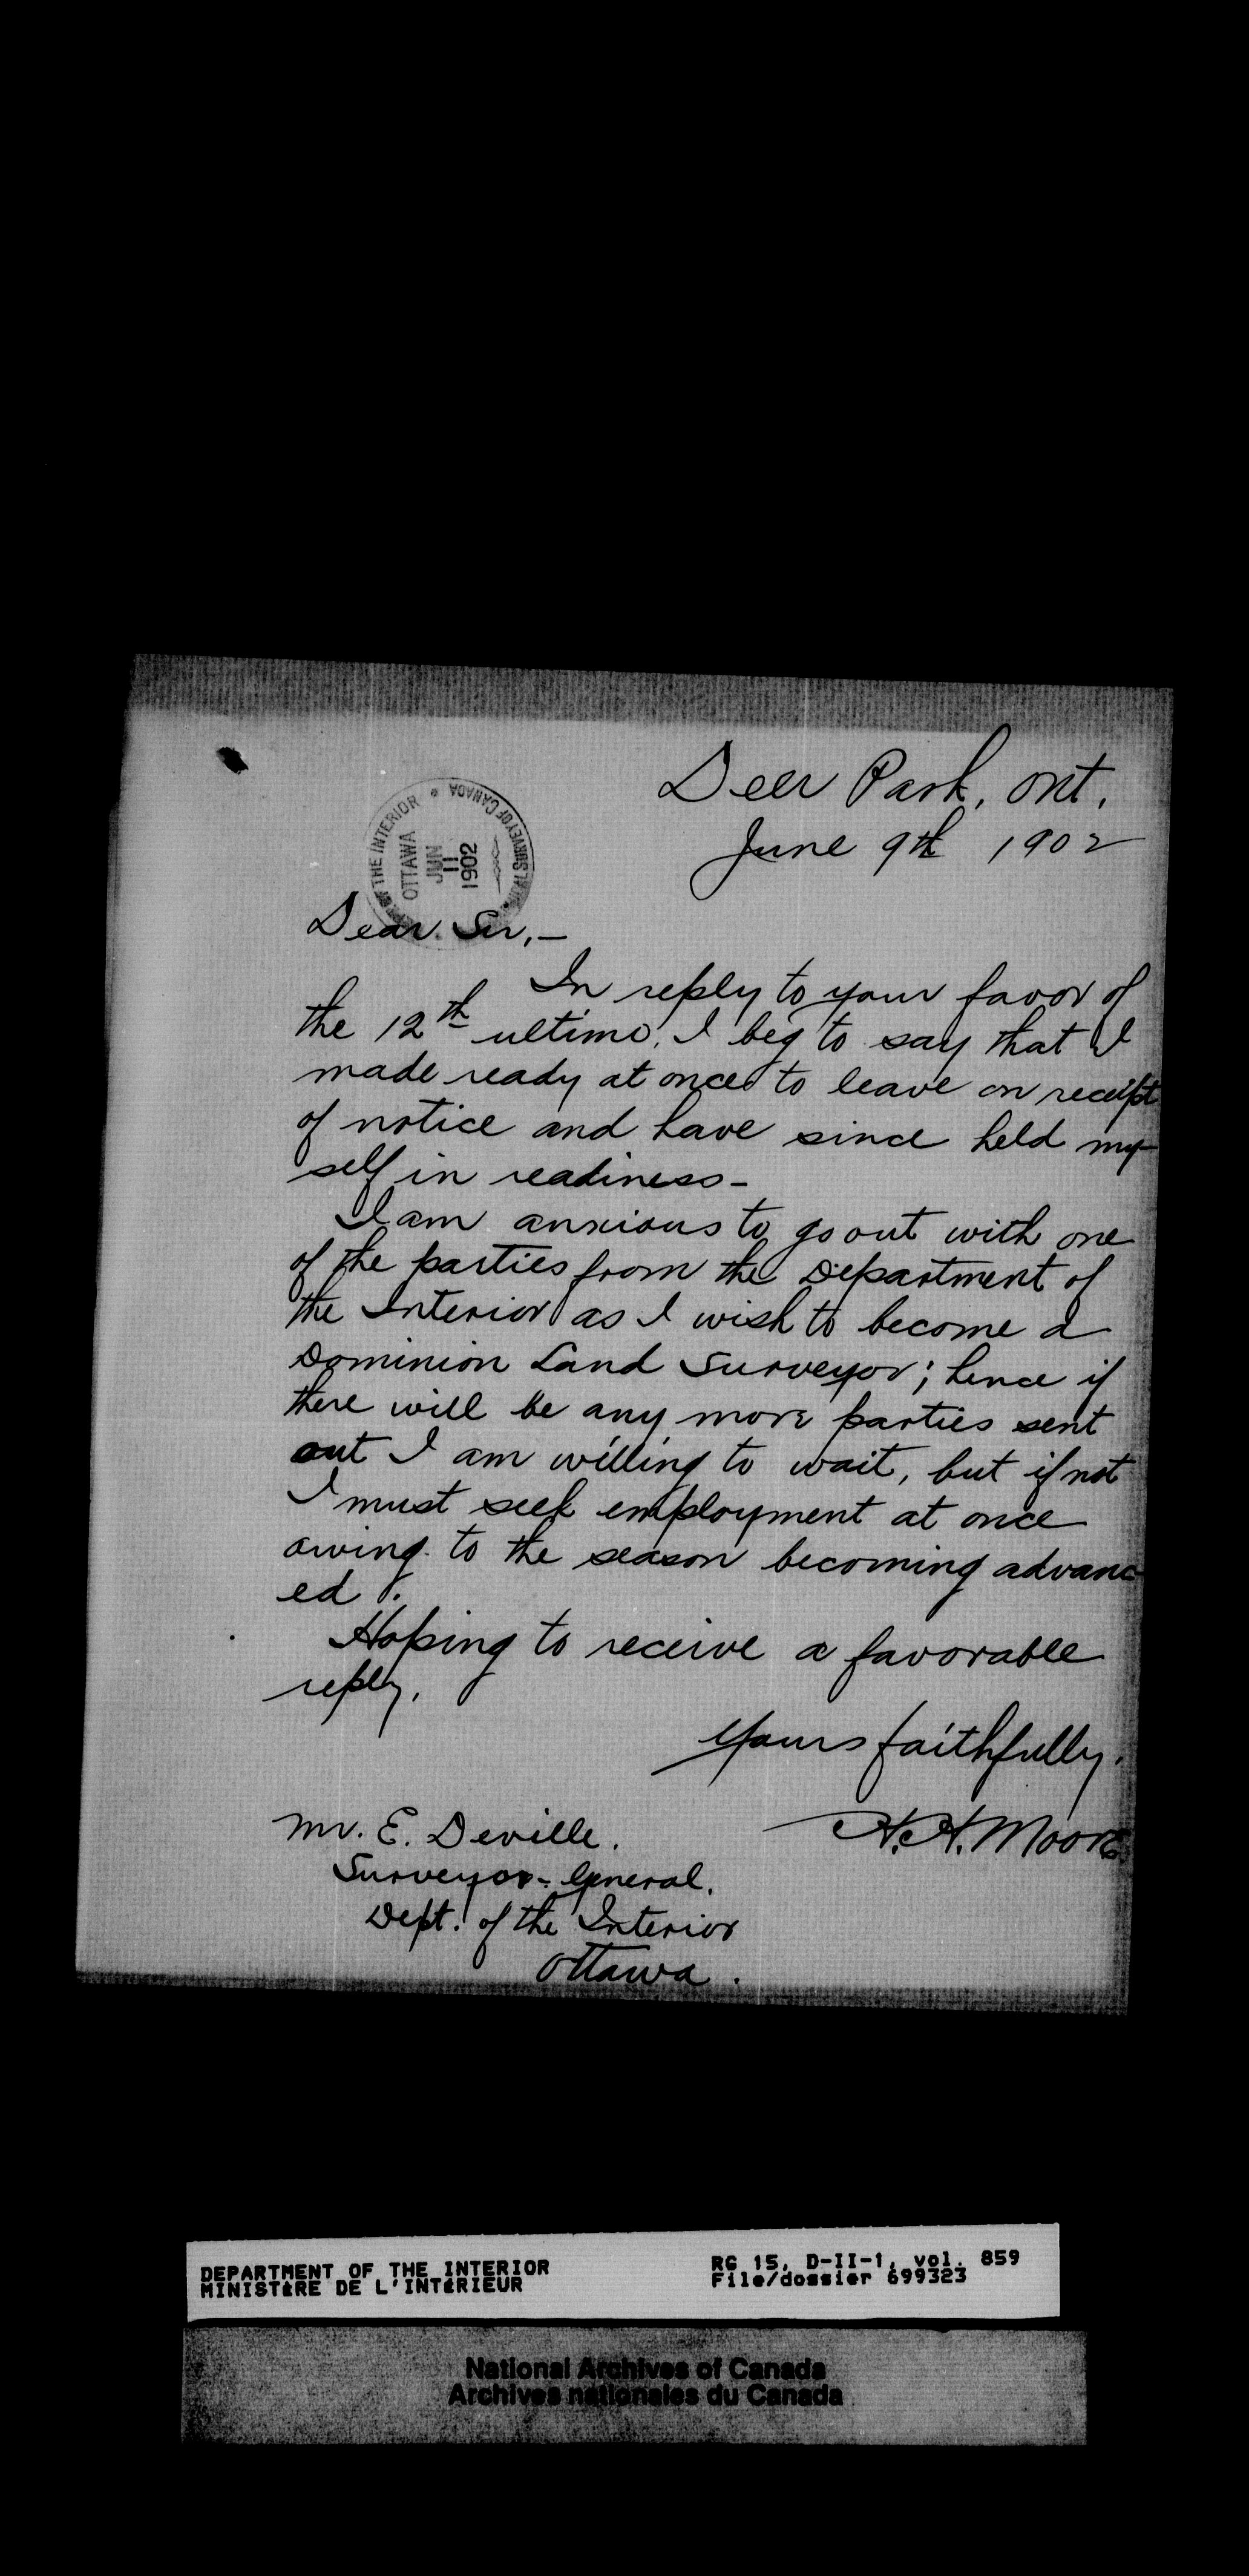 Deer Park, Ont.
June 9th 1902
OF THE INTERIOR * SURVEY OF CANADA
OTTAWA
JUN
11
1902
Dear Sir,—
In reply to your favor of
the 12th ultimo, I beg to say that I
made ready at once to leave on receipt
of notice and have since held my-
self in readiness—
I am anxious to go out with one
of the parties from the Department of
the Interior as I wish to become a
Dominion Land Surveyor; hence if
there will be any more parties sent
out I am willing to wait, but if not
I must seek employment at once
owing to the season becoming advanc-
ed.
Hoping to receive a favorable
reply,
Yours faithfully,
H. H. Moore.
Mr. E. Deville.
Surveyor-General.
Dept. of the Interior
Ottawa.
DEPARTMENT OF THE INTERIOR
MINISTÈRE DE L'INTÉRIEUR
RG 15, D-II-1, vol. 859
File/dossier 699323
National Archives of Canada
Archives nationales du Canada